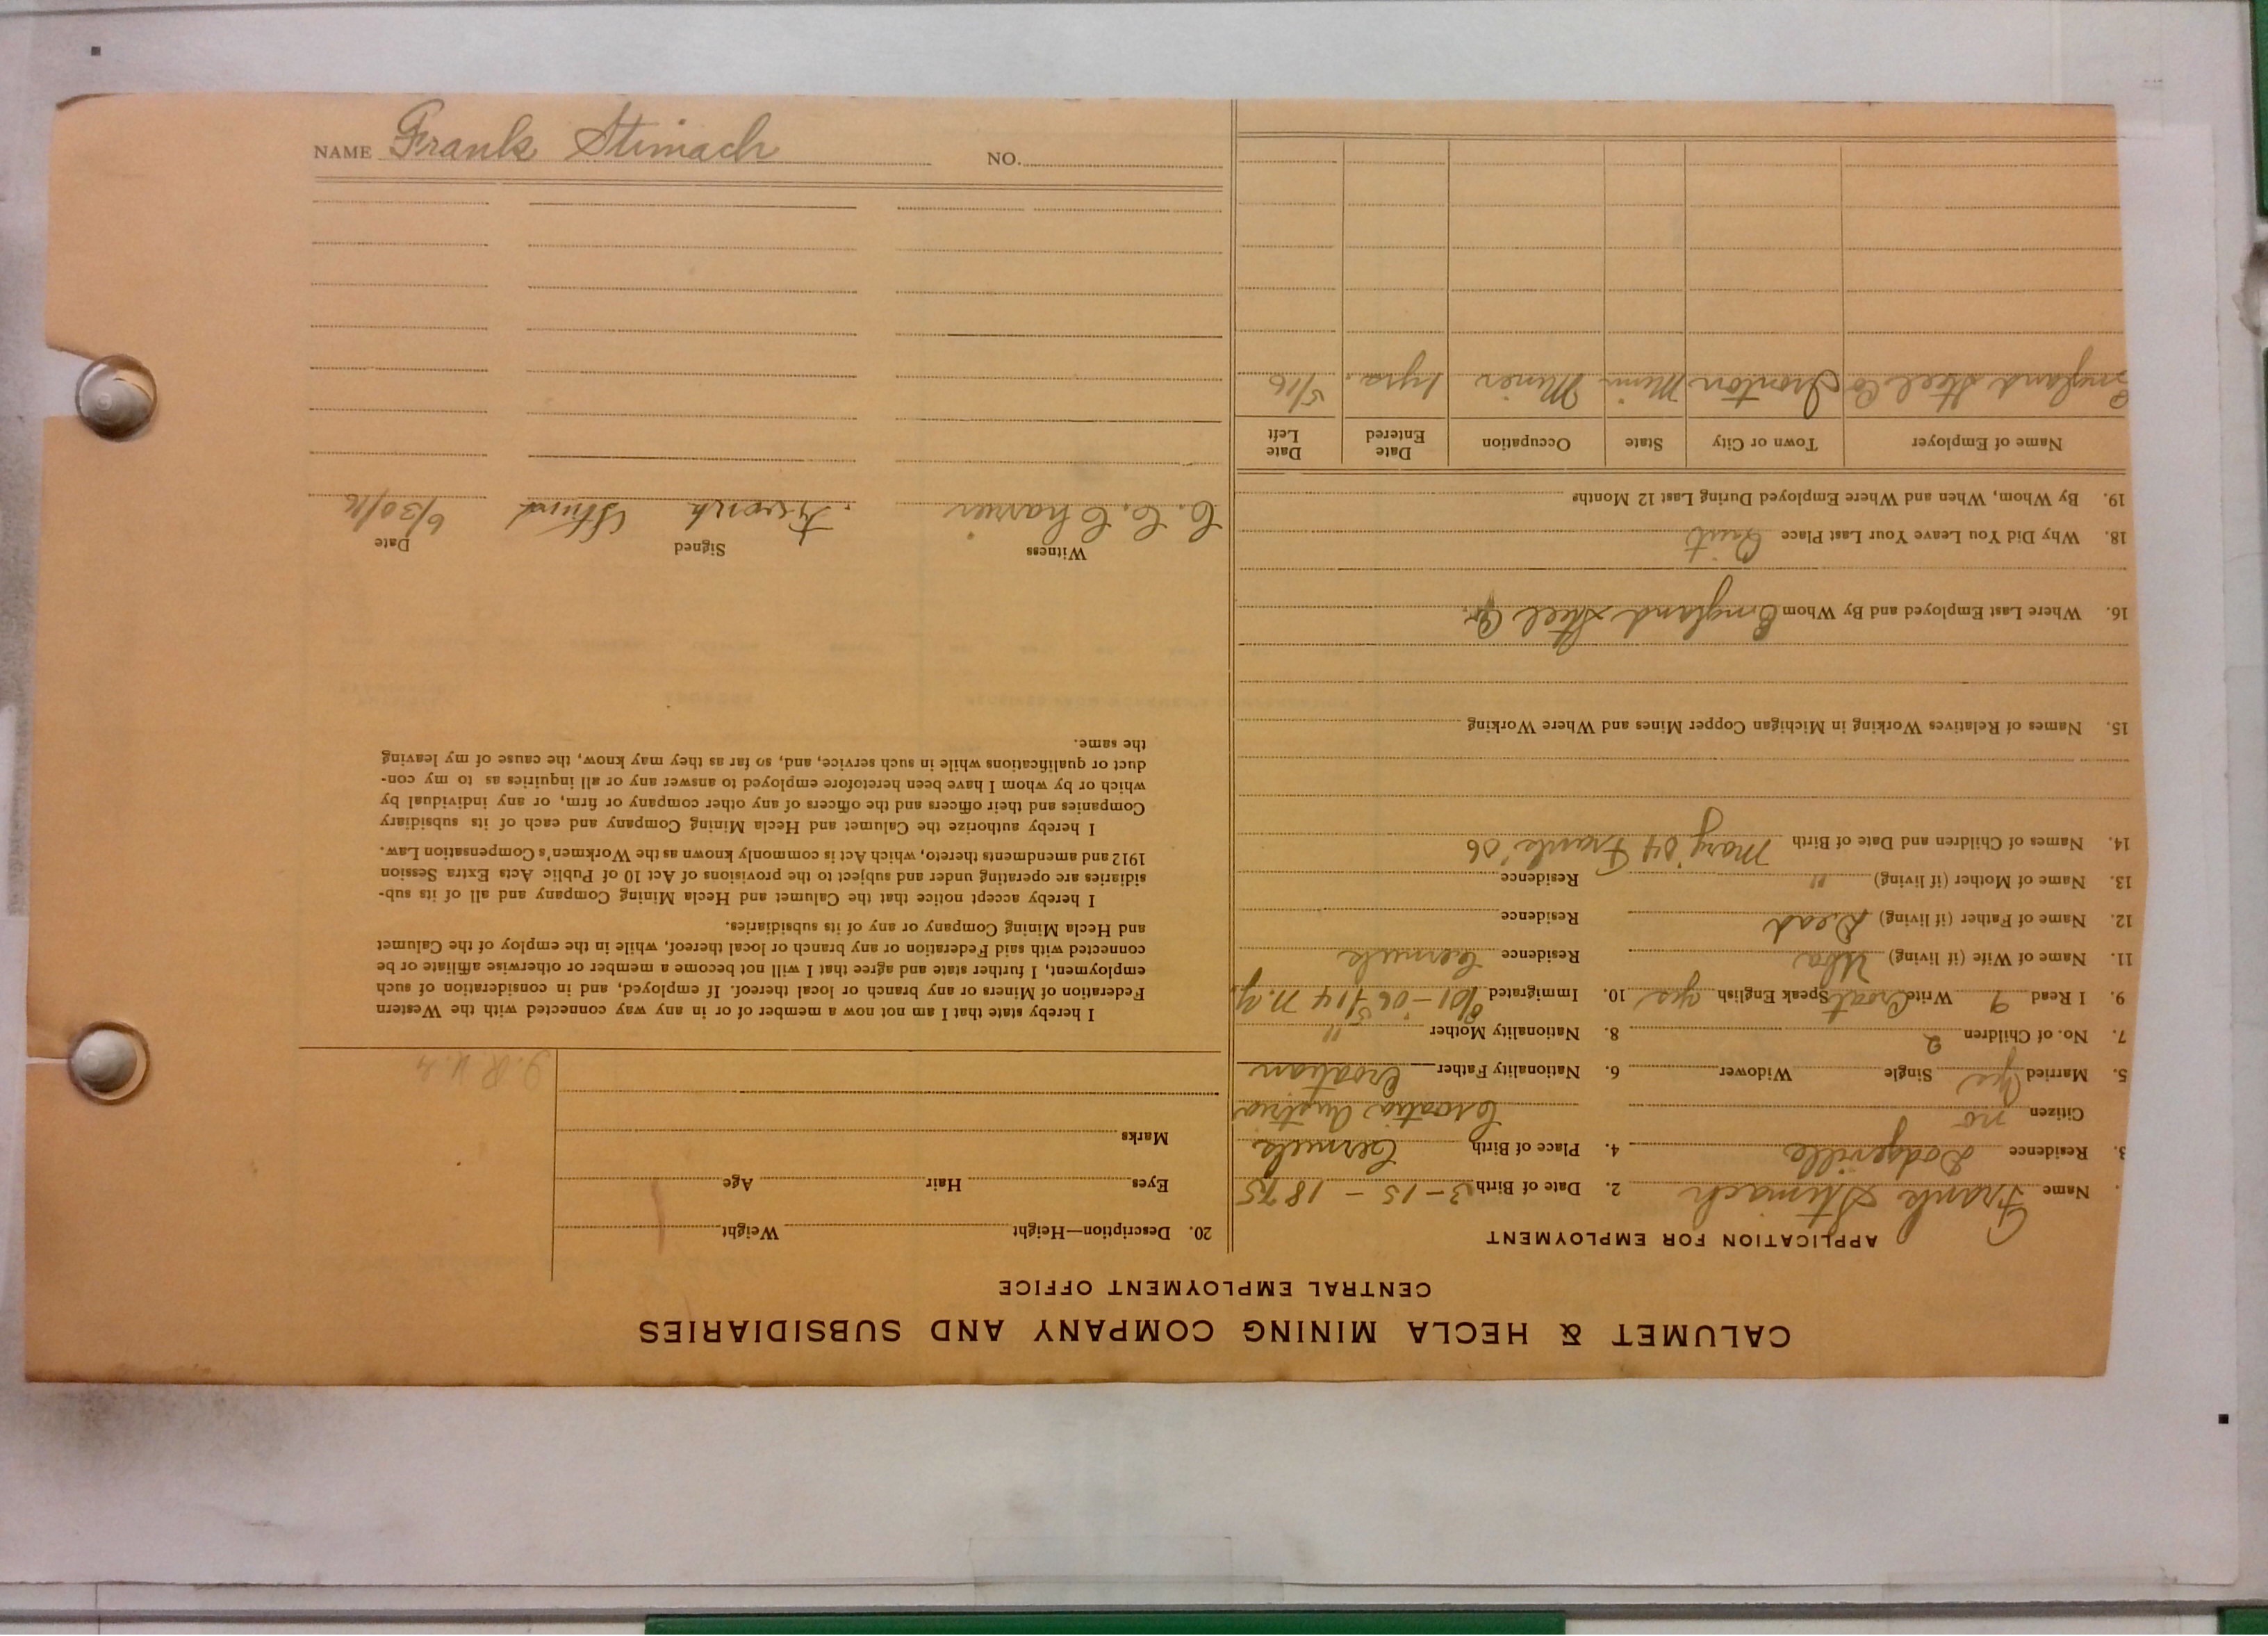 CALUMET & HECLA MINING COMPANY AND SUBSIDIARIES
CENTRAL EMPLOYMENT OFFICE
APPLICATION FOR EMPLOYMENT
Name Frank Stimach 2. Date of Birth 3-15-1875
3. Residence Dodgeville 4. Place of Birth
Citizen no Croatia Austria
5. Married yes Single Widower 6. Nationality Father Croatian
7. No. of Children 2 8. Nationality Mother "
9. I Read Write Croat Speak English yes 10. Immigrated 8/01-06 5/14 N.Y.
11. Name of Wife (if living) Residence
12. Name of Father (if living) Dead Residence
13. Name of Mother (if living) " Residence
14. Names of Children and Date of Birth Mary '04 Frank '06
15. Names of Relatives Working in Michigan Copper Mines and Where Working
16. Where Last Employed and By Whom England Steel Co.
18. Why Did You Leave Your Last Place Quit
19. By Whom, When and Where Employed During Last 12 Months
Name of Employer Town or City State Occupation Date Entered Date Left
England Steel Co Ironton Minn Miner 1 yrs. 5/16
20. Description—Height Weight
Eyes Hair Age
Marks
I hereby state that I am not now a member of or in any way connected with the Western
Federation of Miners or any branch or local thereof. If employed, and in consideration of such
employment, I further state and agree that I will not become a member or otherwise affiliate or be
connected with said Federation or any branch or local thereof, while in the employ of the Calumet
and Hecla Mining Company or any of its subsidiaries.
I hereby accept notice that the Calumet and Hecla Mining Company and all of its sub-
sidiaries are operating under and subject to the provisions of Act 10 of Public Acts Extra Session
1912 and amendments thereto, which Act is commonly known as the Workmen's Compensation Law.
I hereby authorize the Calumet and Hecla Mining Company and each of its subsidiary
Companies and their officers and the officers of any other company or firm, or any individual by
which or by whom I have been heretofore employed to answer any or all inquiries as to my con-
duct or qualifications while in such service, and, so far as they may know, the cause of my leaving
the same.
Witness Signed Date
6/30/16
NAME Frank Stimach NO.